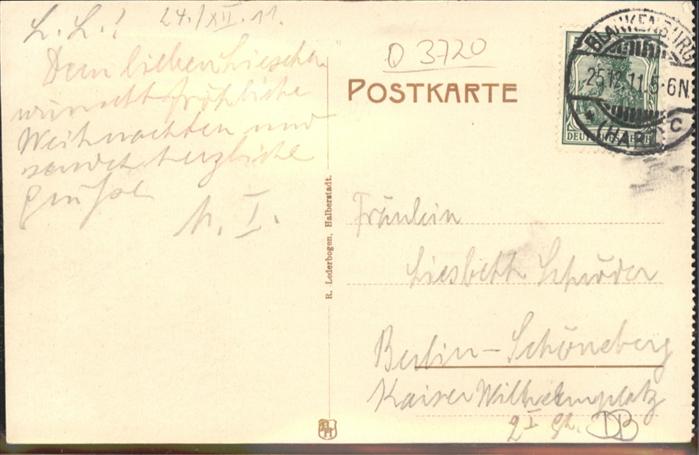 L. L.! 24./XII. 11.
Dem lieben Lieschen
wünscht fröhliche
Weihnachten und
sendet herzliche
Grüße
M. I.
D 3720
POSTKARTE
BLANKENBURG
25.12.11.5-6N
(HARZ) C
DEUTSCHES REICH
R. Lederbogen, Halberstadt.
Fräulein
Liesbeth Schröder
Berlin-Schöneberg
Kaiser Wilhelmplatz
2 I